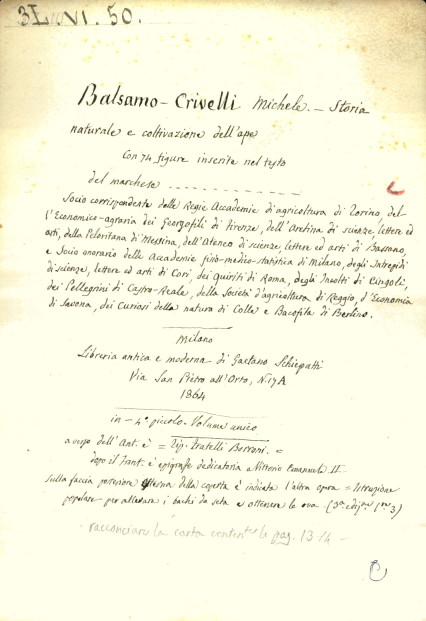 3L. VI. 50.
Balsamo-Crivelli Michele. - Storia
naturale e coltivazione dell'ape
Con 74 figure inserite nel testo
del marchese - - - - - - - - - - - - -
Socio corrispondente delle Regie Accademie di agricoltura di Torino, del-
l'Economico-agraria dei Georgofili di Firenze, dell'Aretina di scienze, lettere ed
arti, della Peloritana di Messina, dell'Ateneo di scienze, lettere ed arti di Bassano,
e Socio onorario delle Accademie fisio-medico-statistica di Milano, degli Intrepidi
di scienze, lettere ed arti di Cori, dei Quiriti di Roma, degli Incolti di Cingoli,
dei Pellegrini di Castro-Reale, della Società d'agricoltura di Reggio, d'Economia
di Savona, dei Curiosi della natura di Colle e Bacofila di Berlino.
Milano
Libreria antica e moderna di Gaetano Schiepatti
Via San Pietro all'Orto, N. 17A
1864
in-4° piccolo. Volume unico
a verso dell'Ant. è = Tip. Fratelli Borroni. =
dopo il Front. è epigrafe dedicatoria a Vittorio Emanuele II
sulla faccia posteriore esterna della coperta è indicata l'altra opera = Istruzione
popolare per allevare i bachi da seta e ottenere le ova -
racconciare la carta le pag. 13-14 -
C